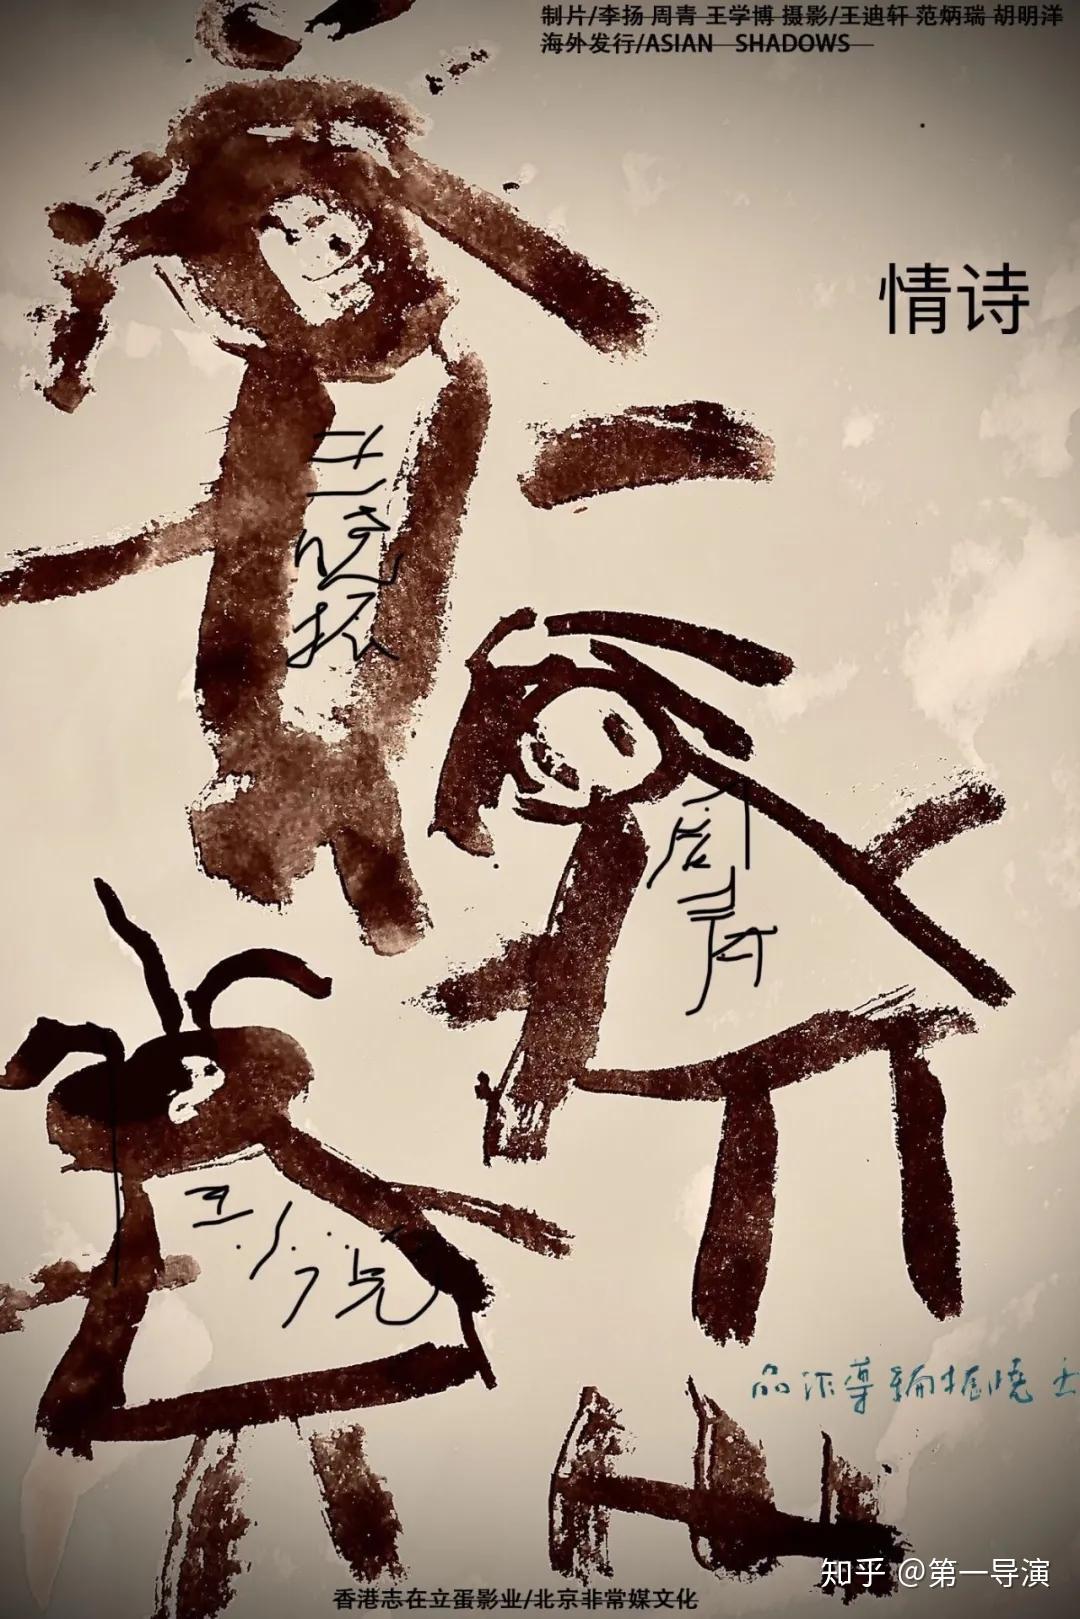 制片/李扬 周青 王学博 摄影/王迪轩 范炳瑞 胡明洋
海外发行/ASIAN SHADOWS
情诗
王晓振
周青
王小点
品作導編振曉王
知乎 @第一导演
香港志在立蛋影业/北京非常媒文化